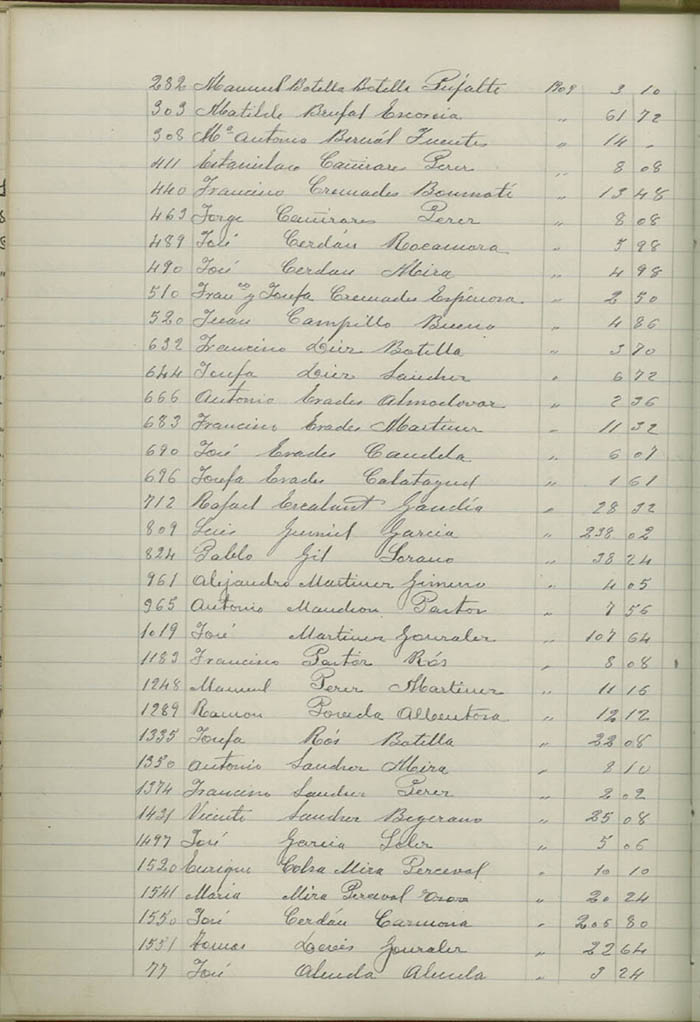 282 Manuel Botella Botella Pifalte 1909 3 10
303 Matilde Brufal Escorcia " 61 72
308 Mª Antonia Bernál Fuentes " 14 "
411 Estanislao Cañizares Perez " 8 08
440 Francisco Cremades Boumatí " 13 48
463 Jorge Cañizares Perez " 8 08
489 José Cerdán Rocamora " 3 98
490 José Cerdan Mira " 4 98
510 Franco y Josefa Cremades Espinosa " 2 50
520 Juan Campillo Bueno " 4 86
632 Francisco Diez Botella " 3 70
644 Josefa Diez Sanchez " 6 72
666 Antonio Erades Almodovar " 2 36
683 Francisco Erades Martinez " 11 32
690 José Erades Candela " 6 07
696 Josefa Erades Calatayud " 1 61
712 Rafael Escalant Gandía " 28 32
809 Luis Gumiel Garcia " 238 02
824 Pablo Gil Sorano " 38 24
961 Alejandro Martinez Gimeno " 4 05
965 Antonio Maudion Pastor " 7 56
1019 José Martinez Gonzalez " 107 64
1183 Francisco Pastór Rós " 8 08
1248 Manuel Perez Martinez " 11 16
1289 Ramon Poveda Albentosa " 12 12
1335 Josefa Rós Botella " 22 08
1350 Antonio Sanchez Mira " 8 10
1374 Francisco Sanchez Perez " 2 02
1431 Vicente Sanchez Bejerano " 25 08
1497 José Garcia Soler " 5 06
1520 Enrique Colsa Mira Perceval " 10 10
1541 Maria Mira Perceval " 20 24
1550 José Cerdán Carmona " 205 80
1551 Tomas Gonzalez " 22 64
77 José Almela Almela " 3 24